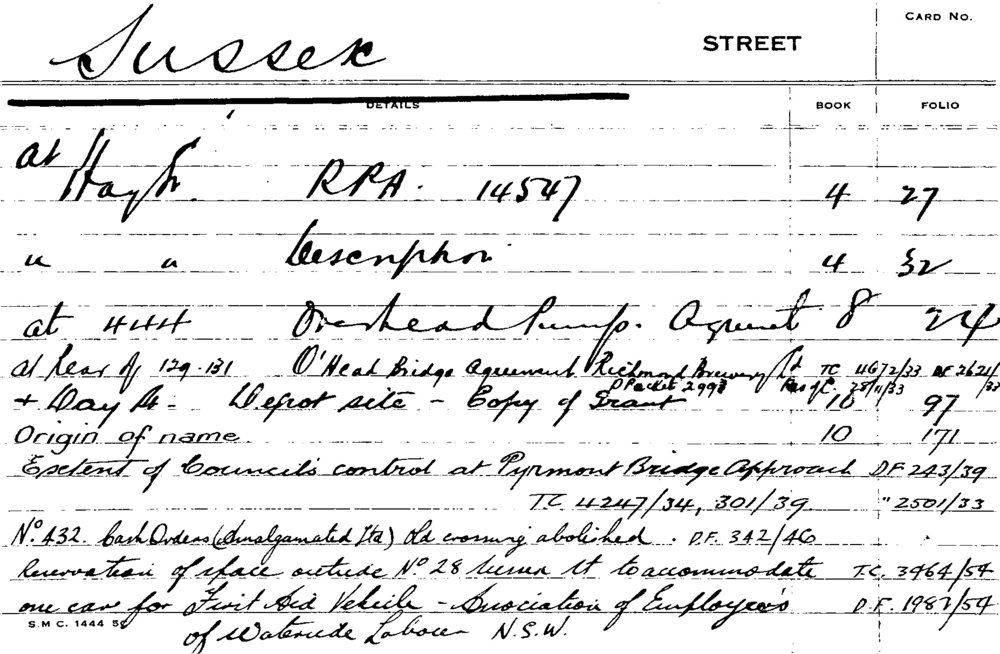 CARD NO.
Sussex STREET
DETAILS BOOK FOLIO
at Hay St. RPA. 14547 4 27
" " Description 4 32
at 444 Overhead Pump. Agrmnt 8 24
at Rear of 129-131 O'Head Bridge Agreement Richmond Brewery Ltd TC 4672/33 DF 2621/33
P Packet 2993 28/11/33
+ Day St - Depot site - Copy of Grant 10 97
Origin of name 10 171
Extent of Council's control at Pyrmont Bridge Approach DF 243/39
TC 4247/34, 301/39 " 2501/33
No. 432. Cash Orders (Amalgamated Ltd) Old crossing abolished. D.F. 342/46
Reservation of space outside No 28 Sussex St to accommodate T.C. 3464/54
one car for First Aid Vehicle - Association of Employees D.F. 1982/54
of Waterside Labour N.S.W.
S.M C. 1444 59